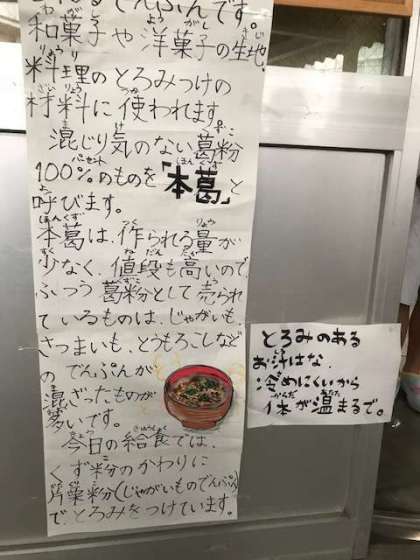 でんぷんです。
和菓子や洋菓子の生地、
料理のとろみつけの
材料に使われます。
混じり気のない葛粉
100%のものを「本葛」と
呼びます。
本葛は、作られる量が
少なく、値段も高いので、
ふつう葛粉として売られ
ているものは、じゃがいも、
さつまいも、とうもろこしなど
の でんぷんが
混ざったものが
多いです。
今日の給食では、
くず粉のかわりに
片栗粉(じゃがいものでんぷん)
で、とろみをつけています。
とろみのある
お汁はな、
冷めにくいから
体が温まるで。